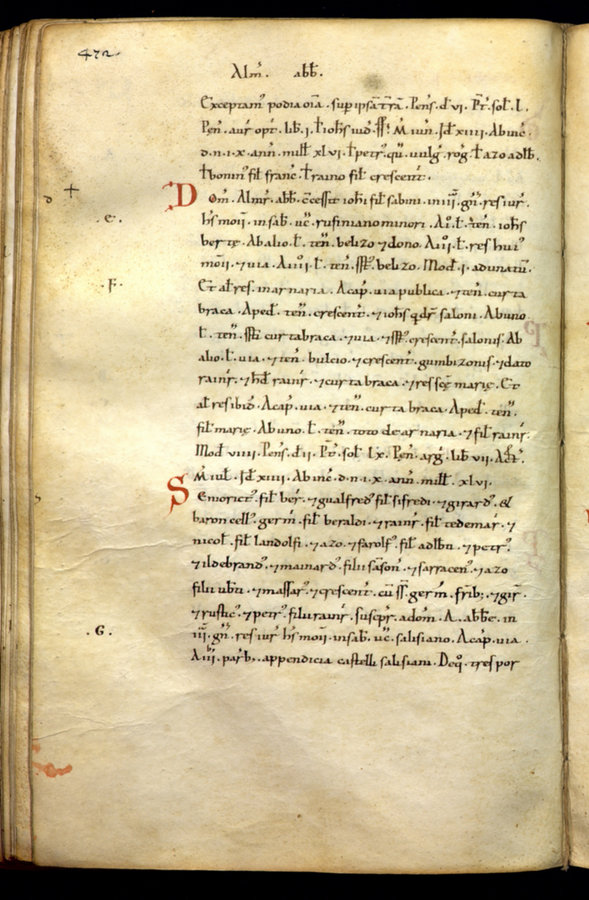 472
Alm̄. abb̄.
Exceptam᷒ podia oīa. sup ipsā t̄rā. Pens̄. d̄ VI. Pr̄t. sol̄. L.
Pen̄. aur̄ opt̄. lib̄. I. t̄ ioh̄s iud̄. ss̄. M̄ iun̄. Ind̄ XIIII. Ab inc̄.
d. n. i. x. ann̄. mill̄. XLVI. t̄ petr᷒. qū uulḡ. roḡ. t̄ azo adlb̄.
t̄ bonin᷒ fil̄ franc̄. t̄ raino fil̄ crescent̄.
Dom̄. Almr᷒. abb̄. c̄cessit ioh̄i fil̄ sabini. in III. gn̄. res iur᷒.
.E.
h᷒s mon̄. in sab̄. uc̄. rufiniano minori. A I. l̄. ten̄. ioh̄s
bertę. Ab alio l̄. ten̄. belizo ⁊ dono. A III. l̄. res hui᷒
mon̄. ⁊ uia. A IIII. l̄. ten̄. ss̄. belizo. Mod̄. I. adunatū.
.F.
Et al̄ res. in arnaria. A cap̄. uia publica. ⁊ ten̄. curta
braca. A ped̄. ten̄. crescent̄. ⁊ ioh̄s qdr̄ saloni. Ab uno
l̄. ten̄. ss̄ti curtabraca. ⁊ uia. ⁊ ss̄. crescent̄. salonis. Ab
alio l̄. uia. ⁊ ten̄. bulcio ⁊ crescent̄. gumbizonis ⁊ dato
rainr̄. ⁊ hd̄ rainr̄. ⁊ curta braca. ⁊ res scę marię. Et
al̄ res ibid̄. A cap̄. uia. ⁊ ten̄. curta braca. A ped̄. ten̄.
fil̄ marię. Ab uno. l̄. ten̄. toto de arnaria. ⁊ fil̄ rainr̄.
Mod̄ VIIII. Pens̄. d̄ II. Pr̄t. sol̄ LX. Pen̄. arḡ. lib̄ VII. Act̄.
M̄ iul̄. Ind̄ XIIII. Ab inc̄. d. n. i. x. ann̄. mill̄. XLVI.
Senorict᷒. fil̄ ber̄. ⁊ gualfred᷒ fil̄ sifredi. ⁊ girard᷒. &
baroncell᷒. germ̄. fil̄ beraldi. ⁊ rainr̄. fil̄ tedemar̄. ⁊
nicol̄. fil̄ landolfi. ⁊ azo. ⁊ farolf᷒. fil̄ adlb̄ti. ⁊ petr᷒.
⁊ ildebrand᷒. ⁊ mainard᷒. filii sāsoni. ⁊ sarracen᷒. ⁊ azo
filii ub̄ti. ⁊ massar᷒. ⁊ crescent̄. cū ss̄. germ̄. frib᷒. ⁊ gir̄.
⁊ rustic᷒. ⁊ petr᷒. filii rainr̄. suscpr̄. a dom̄. A. abbe. in
.G.
III. gn̄. res iur᷒ h᷒s mon̄. in sab̄. uc̄. salisiano. A cap̄. uia.
A III. partib᷒. appendicia castelli salisiani. Deq̄. tres por